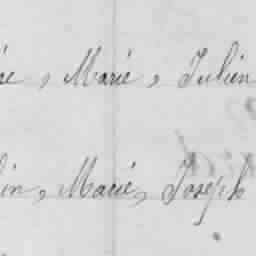 re, Marie, Julien
lin, Marie, Joseph